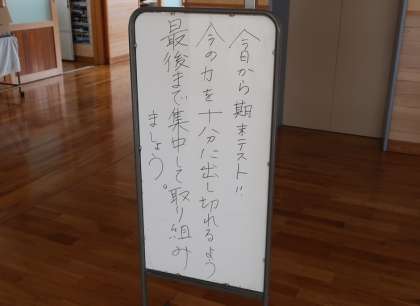 今日から期末テスト!!
今の力を十分に出し切れるよう
最後まで集中して取り組み
ましょう。